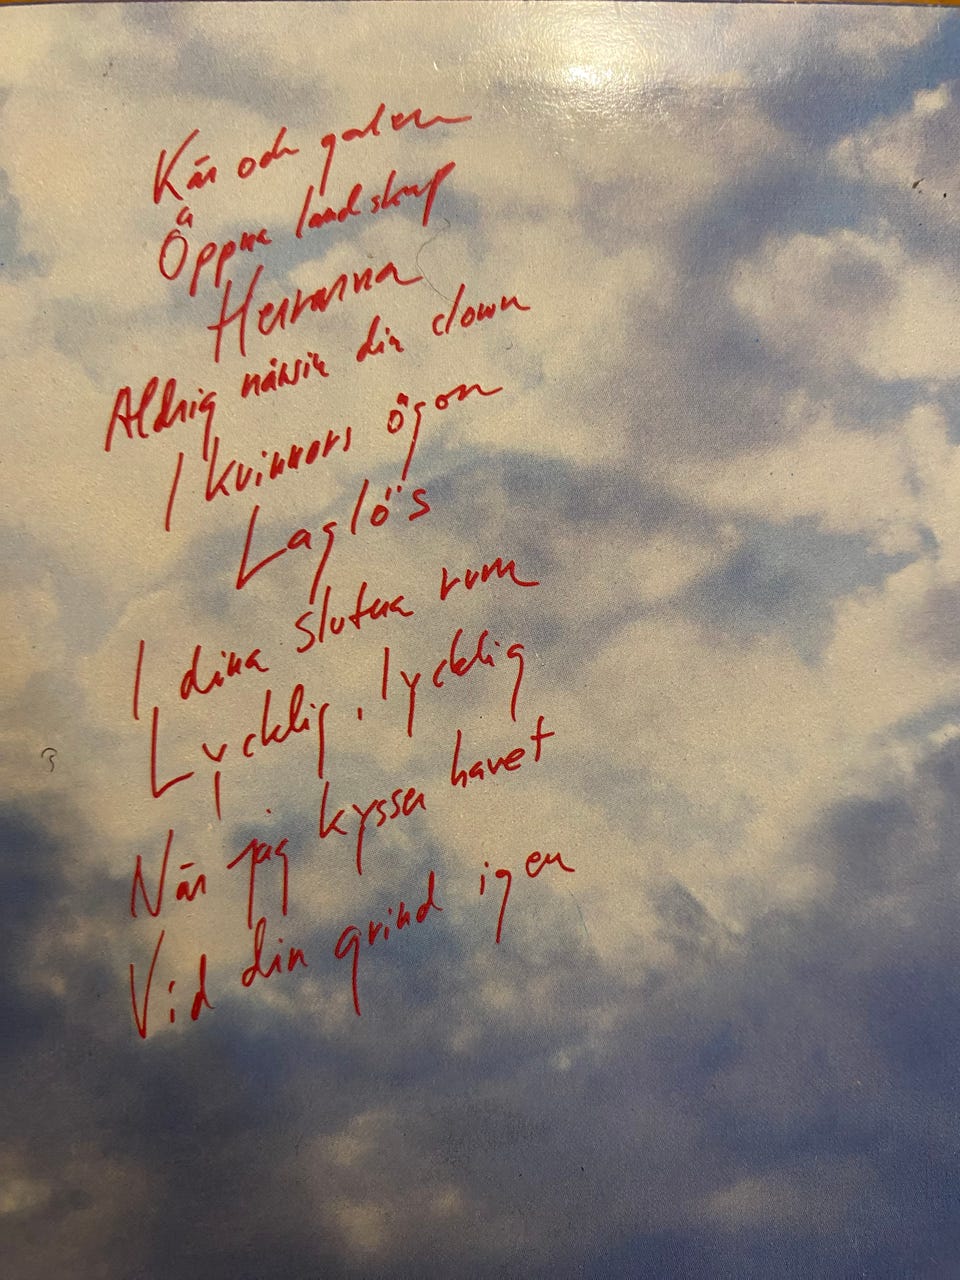 Kär och galen
Öppna landskap
Herrarna
Aldrig nånsin din clown
I kvinnors ögon
Laglös
I dina slutna rum
Lycklig, lycklig
När jag kysser havet
Vid din grind igen